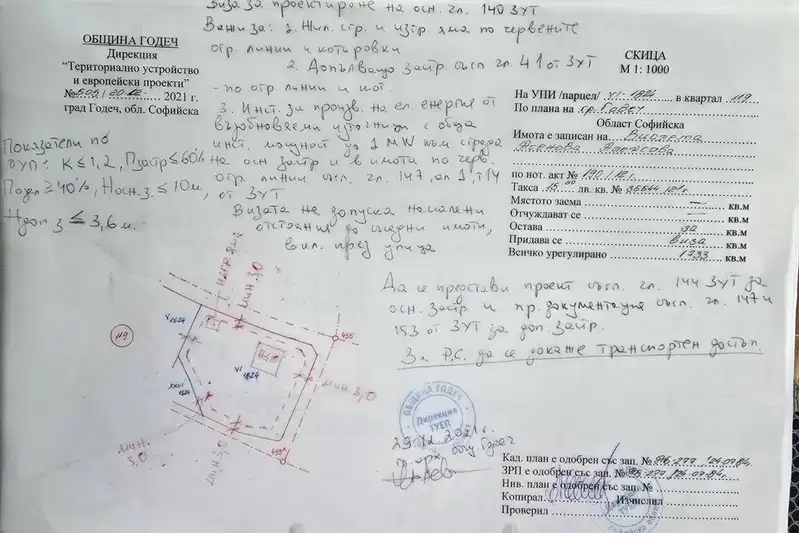 Виза за проектиране на осн. гл. 140 ЗУТ
Важи за: 1. Жил. стр. и изгр. яма по червените
огр. линии и котировки
2. Допълващо застр. съгл. гл. 41 от ЗУТ
- по огр. линии и кот.
3. Инст. за произв. на ел. енергия от
възобновяеми източници с обща
инст. мощност до 1 MW към сграда
на осн застр и в имоти по черв.
огр. линии съгл. гл. 147, ал 1, т 14
от ЗУТ
Визата не допуска намалени
отстояния до съседни имоти,
вкл. през улица
ОБЩИНА ГОДЕЧ
Дирекция
“Териториално устройство
и европейски проекти”
№ 2021 г.
град Годеч, обл. Софийска
Показатели по
ОУП: К ≤ 1,2, Пзастр ≤ 60%
Позел ≥ 40%, Hосн.з. ≤ 10м,
Hдоп з ≤ 3,6 м.
СКИЦА
М 1: 1000
На УПИ /парцел/ VI-1824 в квартал 119
По плана на гр. Годеч
Област Софийска
Имота е записан на Виолета
по нот. акт №
Такса 15.00 лв. кв. №
Мястото заема — кв.м
Отчуждават се — кв.м
Остава за кв.м
Придава се виза кв.м
Всичко урегулирано 1933 кв.м
Да се представи проект съгл. гл. 144 ЗУТ за
осн. застр и пр. документация съгл. гл. 147 и
153 от ЗУТ за доп. застр.
За Р.С. да се докаже транспортен достъп.
изгр. яма
мин 3,0
V 1824
119
455
VI
1824
XVIII
1824
мин 3,0
мин.
3,0
мин 3,0
ОБЩИНА ГОДЕЧ
Дирекция
ТУЕП
2021 г.
гл. арх. общ. Годеч
Кад. план е одобрен със зап. №
ЗРП е одобрен със зап. №
Нив. план е одобрен със зап. №
Копирал Изчислил
Проверил